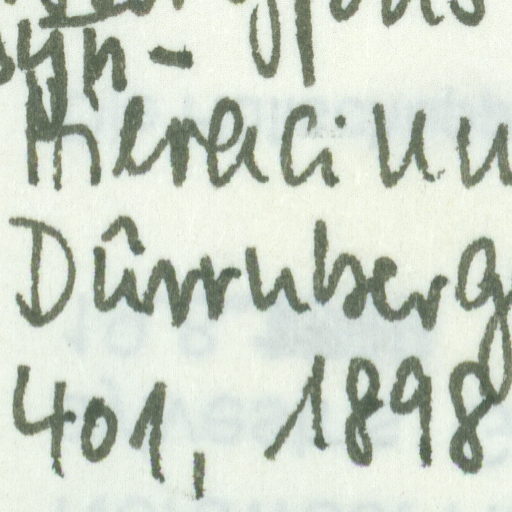 syn-
Hieracium
Dûrrnberg
401, 1898